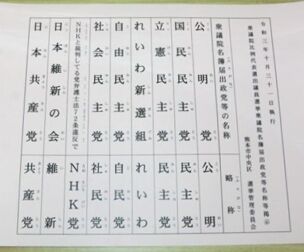 令和三年十月三十一日執行
衆議院比例代表選出議員選挙衆議院名簿届出政党等名称等掲示
熊本市中央区 選挙管理委員会
衆議院名簿届出政党等の名称 略称
公明党 公明党
国民民主党 民主党
立憲民主党 民主党
れいわ新選組 れいわ
自由民主党 自民党
社会民主党 社民党
NHKと裁判してる党弁護士法72条違反で NHK党
日本維新の会 維新
日本共産党 共産党